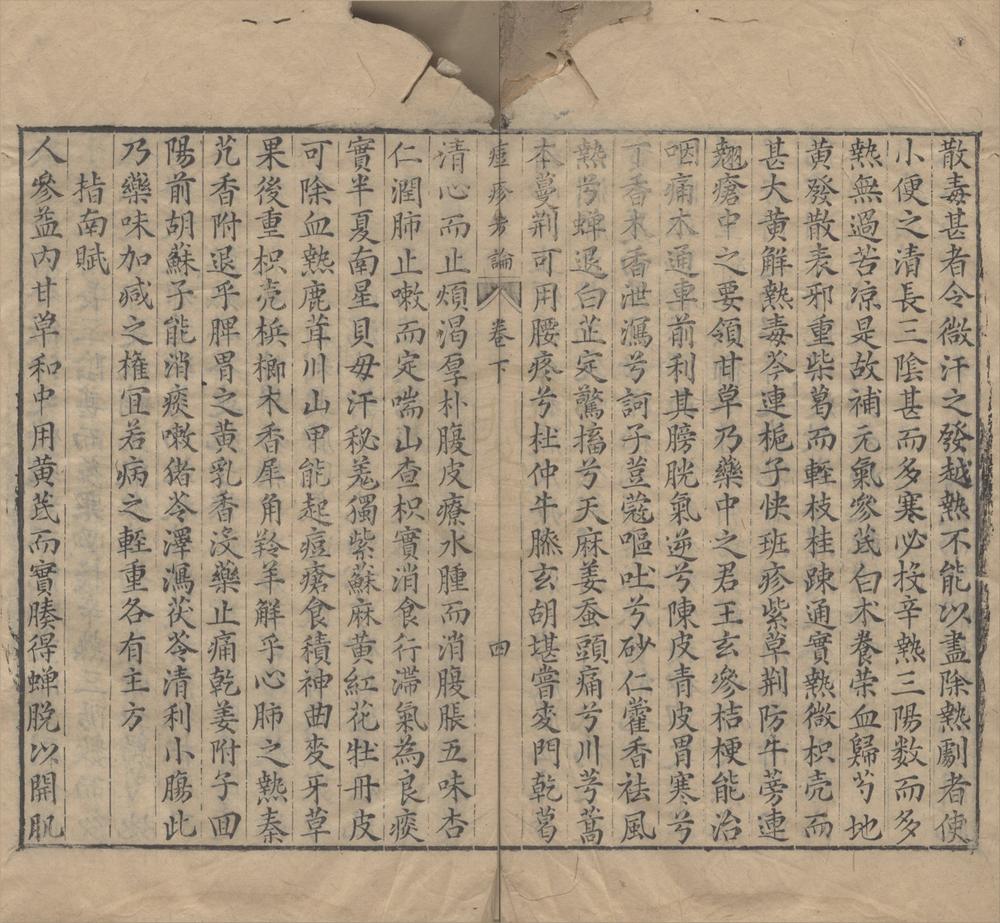 散毒甚者令微汗之發越熱不能以盡除熱劇者使
小便之清長三陰甚而多寒必投辛熱三陽数而多
熱無過苦凉是故補元氣參芪白术養荣血歸芍地
黄發散表邪重柴葛而輊枝桂踈通實熱微枳壳而
甚大黄解熱毒芩連梔子快班疹紫草荆防牛蒡連
翹瘡中之要領甘草乃藥中之君王玄參桔梗能治
咽痛木通車前利其膀胱氣逆兮陳皮青皮胃寒兮
丁香木香泄瀉兮訶子荳蔻嘔吐兮砂仁藿香祛風
熱兮蟬退白芷定驚搐兮天麻姜蚕頭痛兮川芎蒿
本蔓荆可用腰疼兮杜仲牛膝玄胡堪嘗麥門乾葛
痘疹考論 卷下 四
清心而止煩渴厚朴腹皮療水腫而消腹脹五味杏
仁潤肺止嗽而定喘山查枳實消食行滯氣為良痰
實半夏南星貝毋汗秘羗獨紫蘇麻黄紅花牡丹皮
可除血熱鹿茸川山甲能起痘瘡食積神曲麥牙草
果後重枳壳梹榔木香犀角羚羊解乎心肺之熱秦
艽香附退乎脾胃之黄乳香没藥止痛乾姜附子囬
陽前胡蘇子能消痰嗽猪苓澤瀉茯苓清利小膓此
乃藥味加减之權冝若病之輊重各有主方
指南賦
人參益内甘草和中用黄芪而實腠得蟬脱以開肌